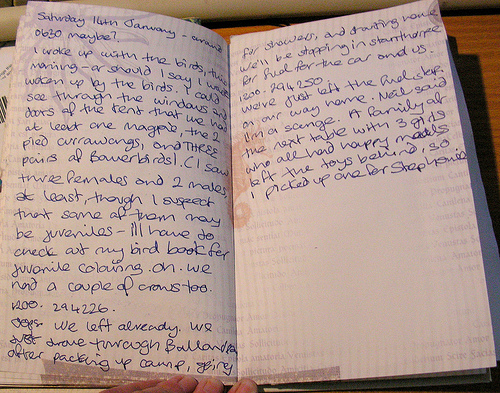 Saturday 14th January - around
0630 maybe?
I woke up with the birds, this
morning - or should I say I was
woken up by the birds. I could
see through the windows and
doors of the tent that we had
at least one magpie, the 2
pied currawongs, and THREE
pairs of Bowerbirds! (I saw
three females and 2 males,
at least, though I suspect
that some of them may
be juveniles - I'll have to
check out my bird book for
juvenile colouring. oh. we
had a couple of crows too.
1200. 294226.
oops. We left already. We
just drove through Ballandean
after packing up camp, going
for showers, and starting home
We'll be stopping in Stanthorpe
for fuel for the car and us.
1200. 294250
We've just left the fuel stop,
on our way home. Neil said
I'm a scunge. A family at
the next table with 3 girls
who all had happy meals
left the toys behind, so
I picked up one for Stephanie